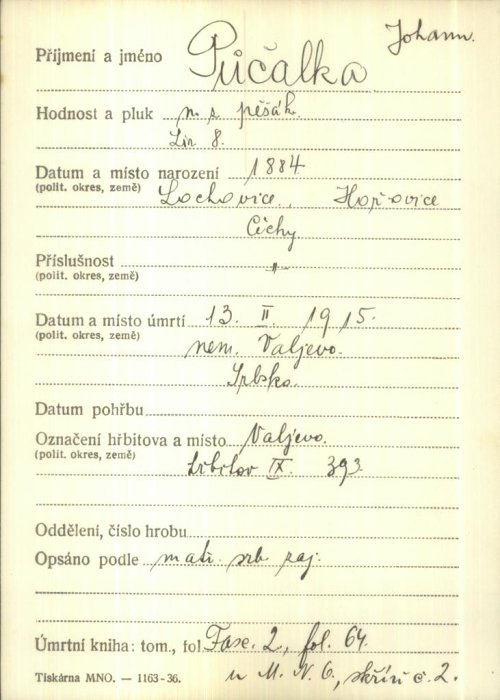 Johann.
Příjmení a jméno Půčalka
Hodnost a pluk n. s. pěšák.
Lir 8.
Datum a místo narození 1884
(polit. okres, země) Lochovice, Hořovice
Čechy
Příslušnost "
(polit. okres, země)
Datum a místo úmrtí 13. II. 1915.
(polit. okres, země) nem. Valjevo.
Srbsko.
Datum pohřbu
Označení hřbitova a místo Valjevo.
(polit. okres, země) IX. 393
Oddělení, číslo hrobu
Opsáno podle matr. srb. zaj.
Úmrtní kniha: tom., fol. Fasc. 2., fol. 64.
Tiskárna MNO. — 1163-36. u M. N. O., skříň č. 2.